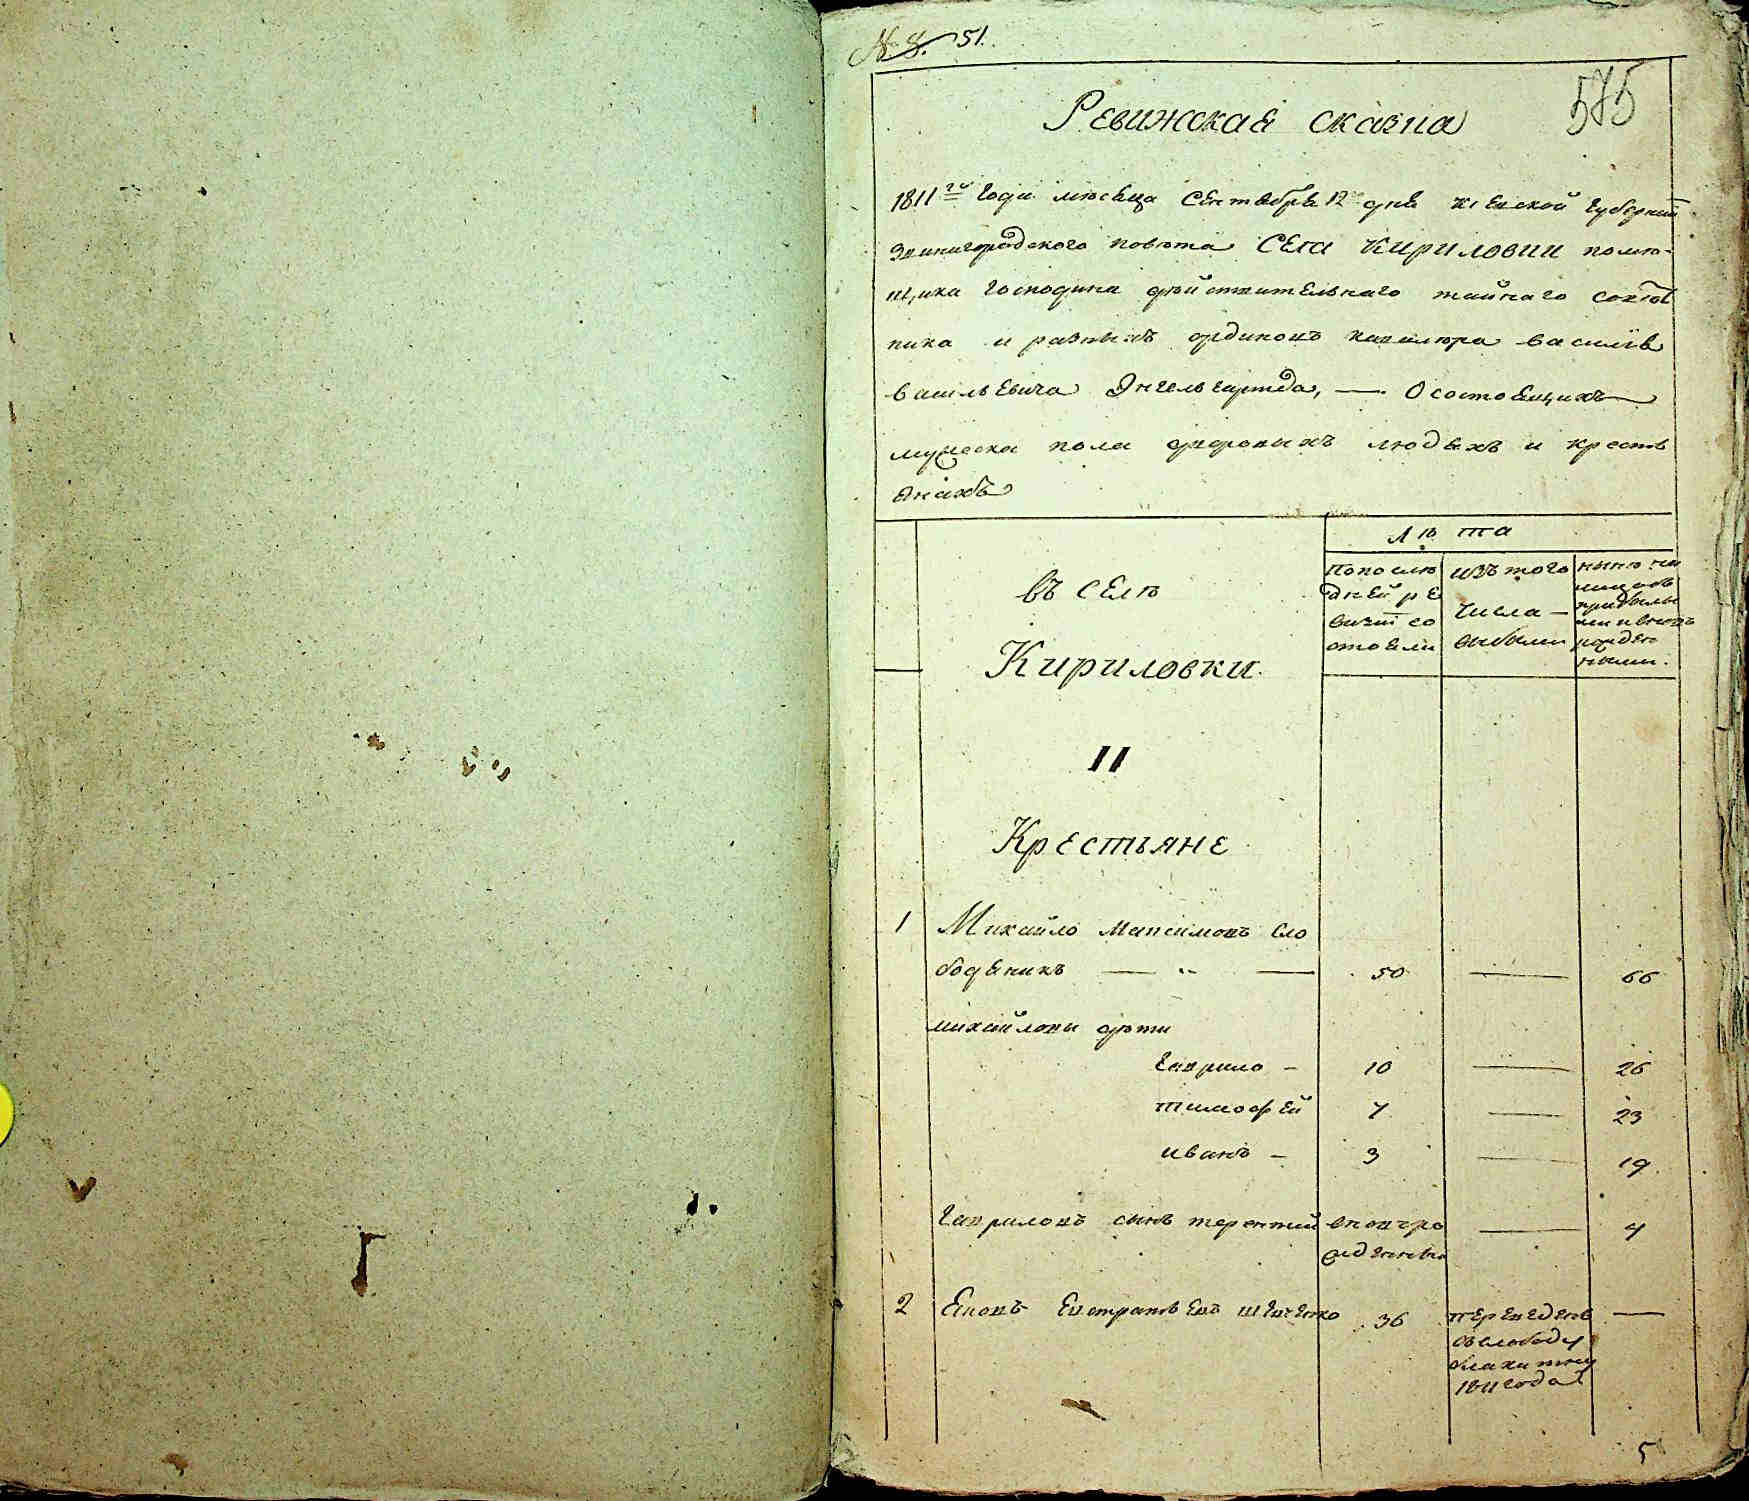 № 8. 51.
575
Ревижская сказка
1811го Года месяца Сентября 12 дня Киевской Губернии
Звинигородского повета Села Кириловки поме-
щика Господина действительнаго тайнаго совет
ника и разныхъ ординовъ кавалера василія
васильевича Энгельгартда, — О состоящихъ
мужеска пола дворовыхъ людяхъ и кресть
янахъ
въ селе
Кириловки.
II
Крестьяне
лѣта
попослѣ
дней ре
визіи со
стояли
изъ того
числа —
выбыли
ныне на
лицо съ
прибылы
ми и вновь
рожден
ными.
1 Михайло Максимовъ Сло
бодяникъ — „ — 50 — 66
михайловы дѣти
Гаврило — 10 — 26
тимофей 7 — 23
иванъ — 3 — 19
Гавриловъ сынъ терентий вновь ро — 4
жденны
2 Яковъ Евстратьевъ шевченко 36 переведенъ —
въ слободу
1811 года
5